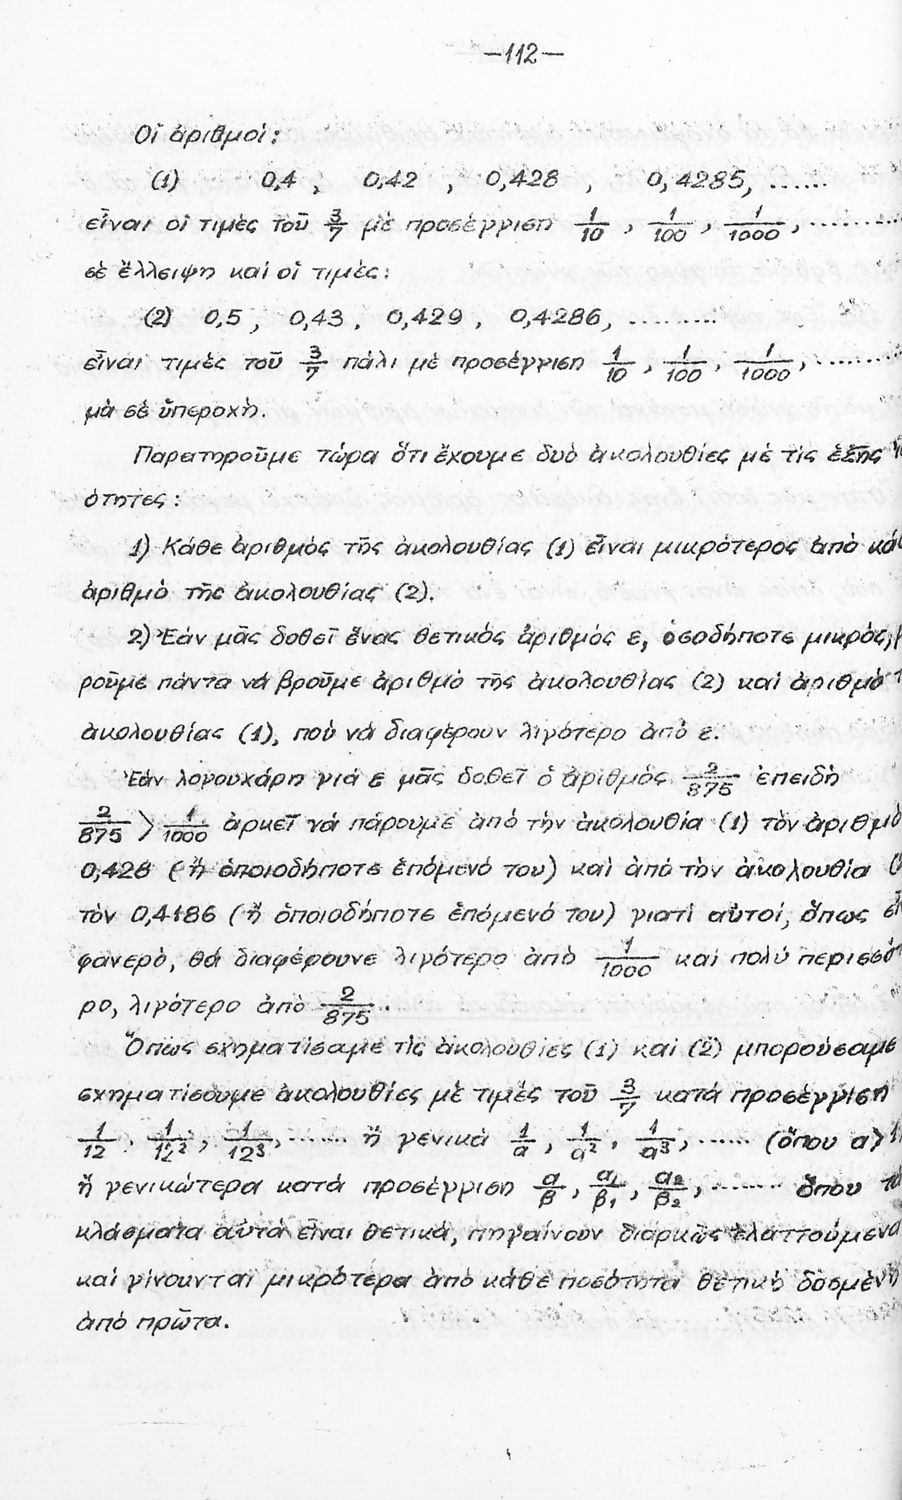 —112—
Οἱ ἀριθμοί:
(1) 0,4 , 0,42 , 0,428 , 0,4285, ......
εἶναι οἱ τιμὲς τοῦ 3/7 μὲ προσέγγιση 1/10 , 1/100 , 1/1000 , ........
σὲ ἔλλειψη καὶ οἱ τιμές:
(2) 0,5 , 0,43 , 0,429 , 0,4286, .........
εἶναι τιμὲς τοῦ 3/7 πάλι μὲ προσέγγιση 1/10 , 1/100 , 1/1000 , ........
μὰ σὲ ὑπεροχή.
Παρατηροῦμε τώρα ὅτι ἔχουμε δυὸ ἀκολουθίες μὲ τὶς ἑξῆς
ότητες:
1) Κάθε ἀριθμὸς τῆς ἀκολουθίας (1) εἶναι μικρότερος ἀπὸ κά
ἀριθμὸ τῆς ἀκολουθίας (2).
2) Ἐὰν μᾶς δοθεῖ ἕνας θετικὸς ἀριθμὸς ε, ὁσοδήποτε μικρός,
ροῦμε πάντα νὰ βροῦμε ἀριθμὸ τῆς ἀκολουθίας (2) καὶ ἀριθμὸ
ἀκολουθίας (1), ποὺ νὰ διαφέρουν λιγότερο ἀπὸ ε.
Ἐὰν λογουχάρη γιὰ ε μᾶς δοθεῖ ὁ ἀριθμὸς 2/875 ἐπειδὴ
2/875 > 1/1000 ἀρκεῖ νὰ πάρουμε ἀπὸ τὴν ἀκολουθία (1) τὸν ἀριθμὸ
0,428 (ἢ ὁποιοδήποτε ἑπόμενό του) καὶ ἀπὸ τὴν ἀκολουθία
τὸν 0,4186 (ἢ ὁποιοδήποτε ἑπόμενό του) γιατὶ αὐτοί, ὅπως εἶ
φανερό, θὰ διαφέρουνε λιγότερο ἀπὸ 1/1000 καὶ πολὺ περισσό
ρο, λιγότερο ἀπὸ 2/875.
Ὅπως σχηματίσαμε τὶς ἀκολουθίες (1) καὶ (2) μπορούσαμε
σχηματίσουμε ἀκολουθίες μὲ τιμὲς τοῦ 3/7 κατὰ προσέγγιση
1/12 , 1/12² , 1/12³ , ...... ἢ γενικὰ 1/α , 1/α² , 1/α³ , ...... (ὅπου α>1
ἢ γενικώτερα κατὰ προσέγγιση α/β , α₁/β₁ , α₂/β₂ , ....... ὅπου τὰ
κλάσματα αὐτὰ εἶναι θετικά, πηγαίνουν διαρκῶς ἐλαττούμενα
καὶ γίνουνται μικρότερα ἀπὸ κάθε ποσότητα θετικὴ δοσμένη
ἀπὸ πρῶτα.